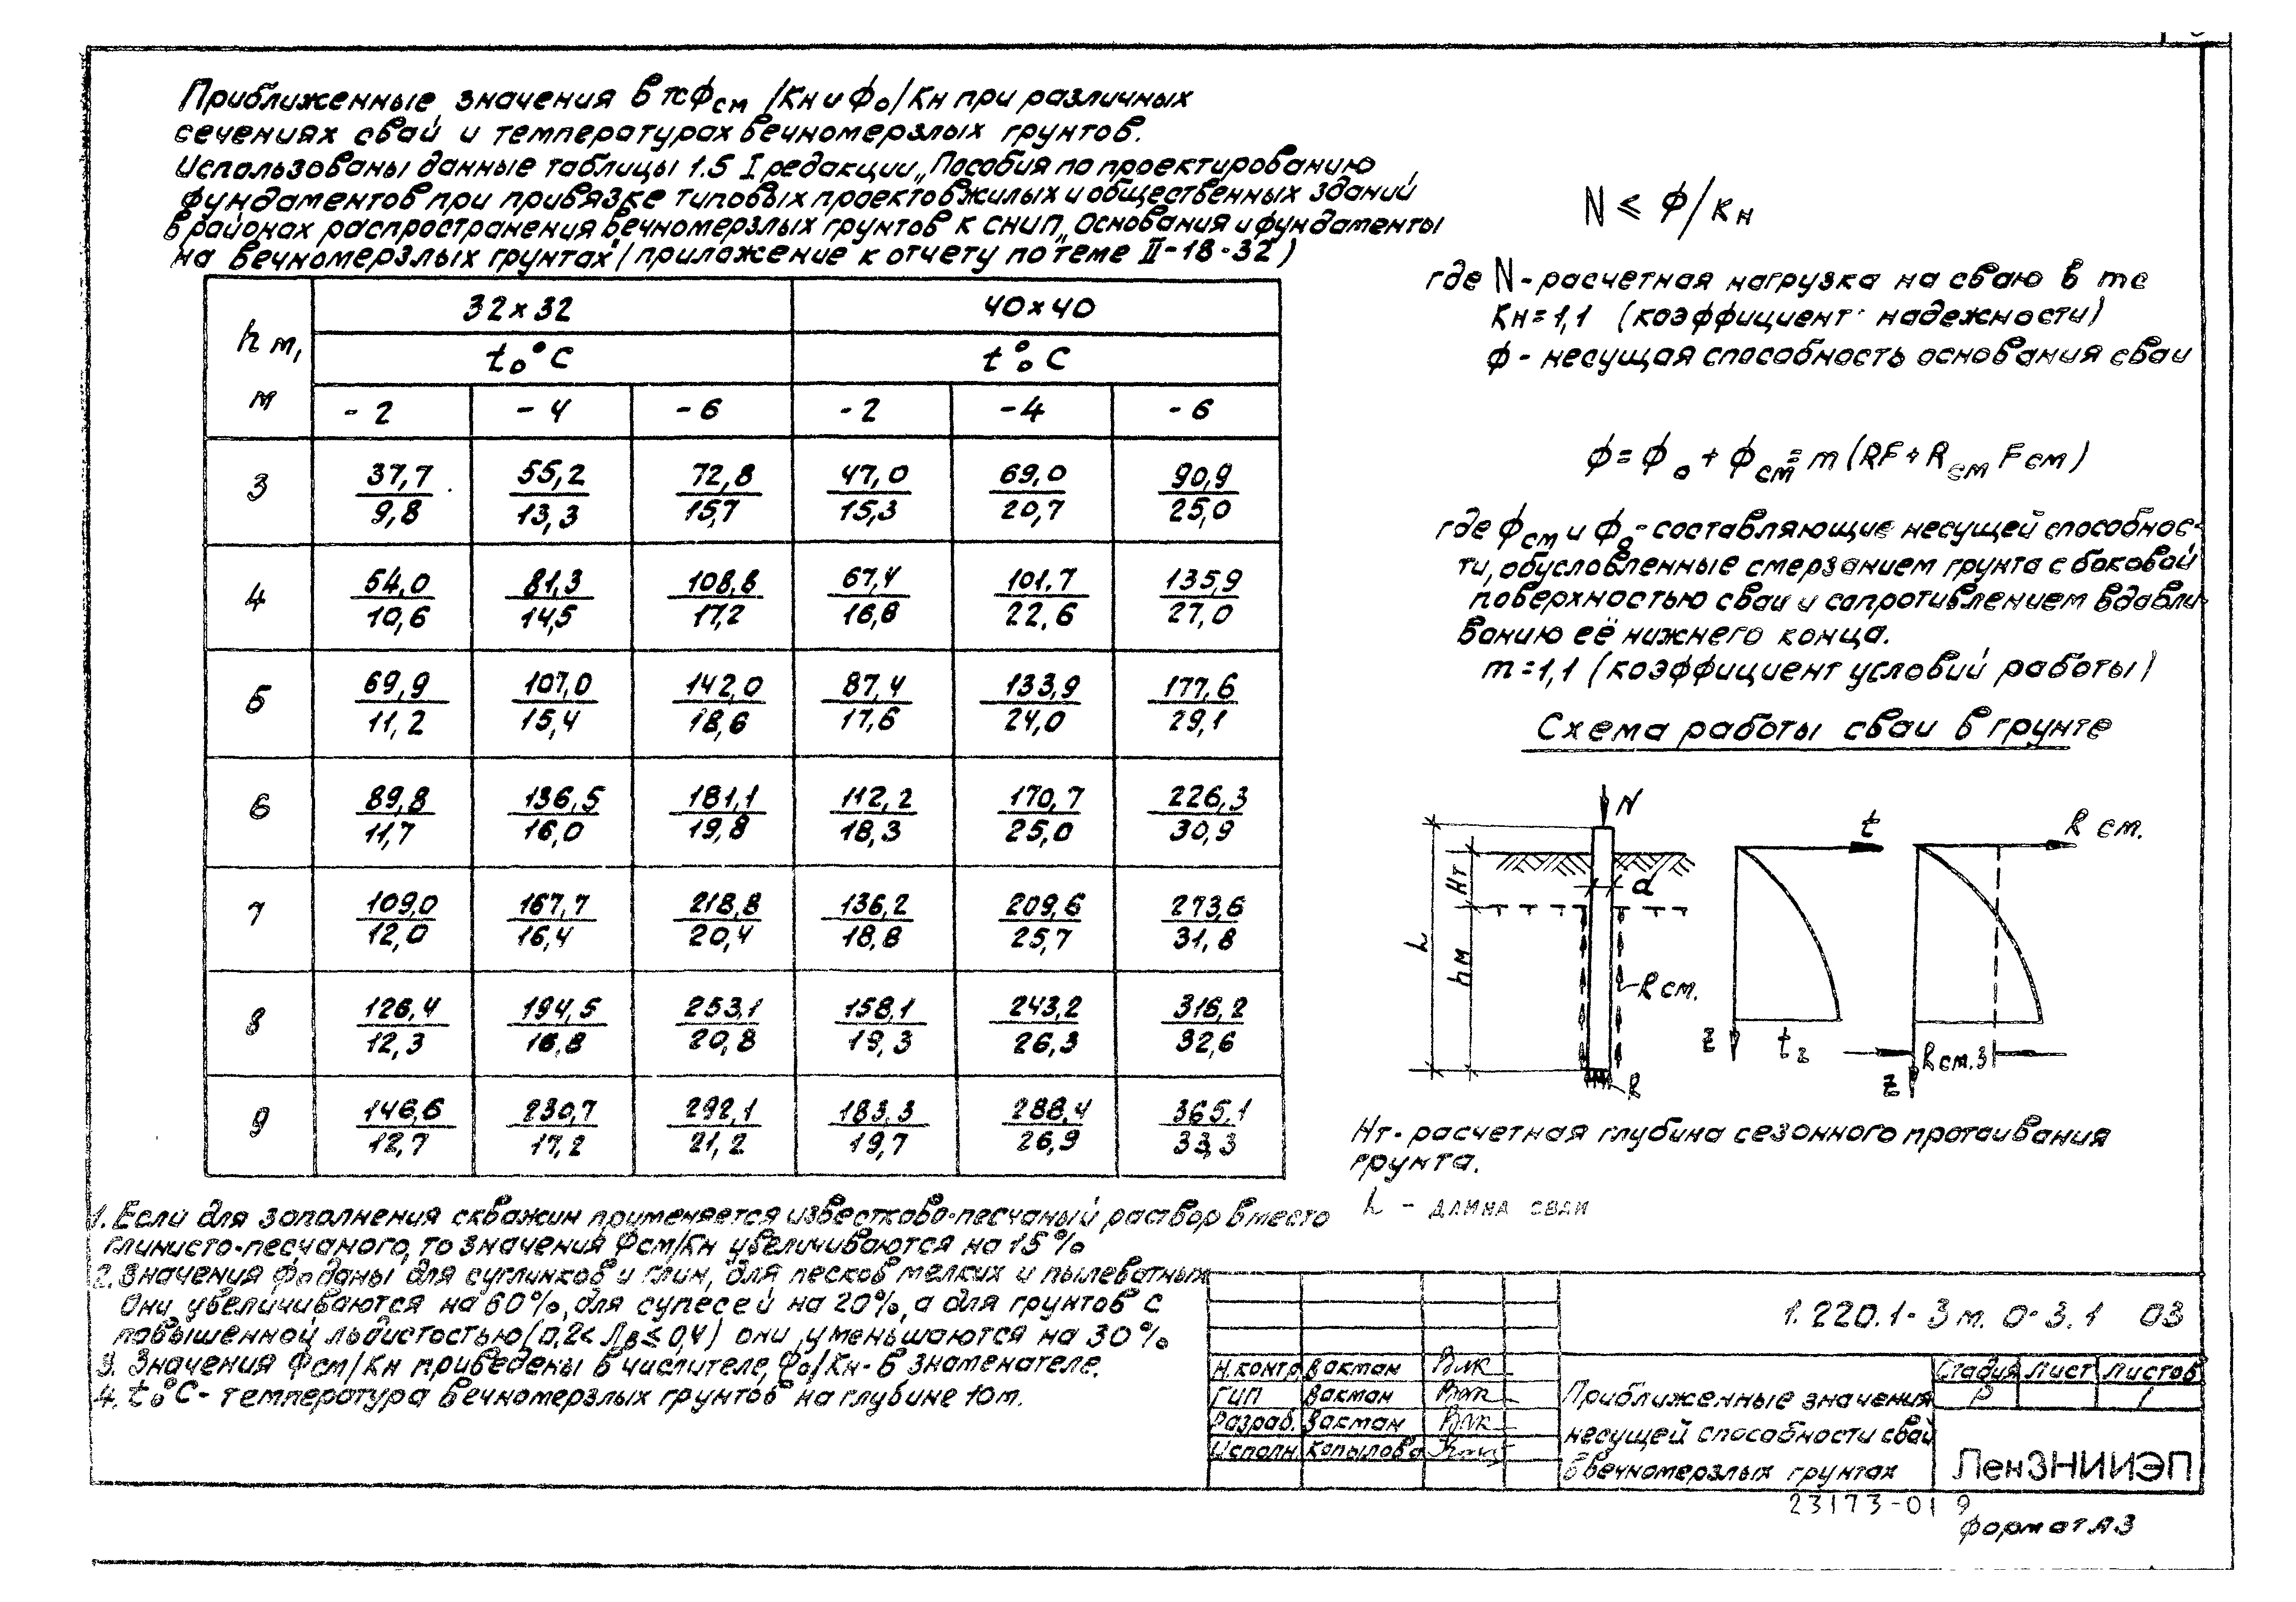 Приближенные значения в тс Фсм/Кн и Фо/Кн при различных
сечениях свай и температурах вечномерзлых грунтов.
Использованы данные таблицы 1.5 I редакции „Пособия по проектированию
фундаментов при привязке типовых проектов жилых и общественных зданий
в районах распространения вечномерзлых грунтов к СНИП „Основания и фундаменты
на вечномерзлых грунтах" (приложение к отчету по теме II-18-32)
hм, м 32×32 40×40
to°C to°C
-2 -4 -6 -2 -4 -6
3 37,7/9,8 55,2/13,3 72,8/15,7 47,0/15,3 69,0/20,7 90,9/25,0
4 54,0/10,6 81,3/14,5 108,8/17,2 67,4/16,8 101,7/22,6 135,9/27,0
5 69,9/11,2 107,0/15,4 142,0/18,6 87,4/17,6 133,9/24,0 177,6/29,1
6 89,8/11,7 136,5/16,0 181,1/19,8 112,2/18,3 170,7/25,0 226,3/30,9
7 109,0/12,0 167,7/16,4 218,8/20,4 136,2/18,8 209,6/25,7 273,6/31,8
8 126,4/12,3 194,5/16,8 253,1/20,8 158,1/19,3 243,2/26,3 316,2/32,6
9 146,6/12,7 230,7/17,2 292,1/21,2 183,3/19,7 288,4/26,9 365,1/33,3
1. Если для заполнения скважин применяется известково-песчаный раствор вместо
глинисто-песчаного, то значения Фсм/Кн увеличиваются на 15%
2. Значения Фо даны для суглинков и глин, для песков мелких и пылеватых
Они увеличиваются на 60%, для супесей на 20%, а для грунтов с
повышенной льдистостью (0,2< Лв ≤ 0,4) они уменьшаются на 30%
3. Значения Фсм/Кн приведены в числителе, Фо/Кн - в знаменателе.
4. to°C - температура вечномерзлых грунтов на глубине 10м.
N ≤ Ф/Кн
где N - расчетная нагрузка на сваю в тс
Кн=1,1 (коэффициент надежности)
Ф - несущая способность основания сваи
Ф = Фо + Фсм = m (RF + Rсм Fсм)
где Фсм и Фо - составляющие несущей способнос-
ти, обусловленные смерзанием грунта с боковой
поверхностью сваи и сапротивлением вдавли-
ванию её нижнего конца.
m=1,1 (коэффициент условий работы)
Схема работы сваи в грунте
N
t
R см.
Нт
d
L
hм
R см.
R
z
tz
R см.з
z
Нт - расчетная глубина сезонного протаивания
грунта.
L - длина сваи
1.220.1-3м. 0-3.1 03
Н.контр. Вакман
ГИП Вакман
Разраб. Вакман
Исполн. Копылова
Приближенные значения
несущей способности свай
в вечномерзлых грунтах
Стадия Лист Листов
Р 1
ЛенЗНИИЭП
23173-01 9
Формат А3